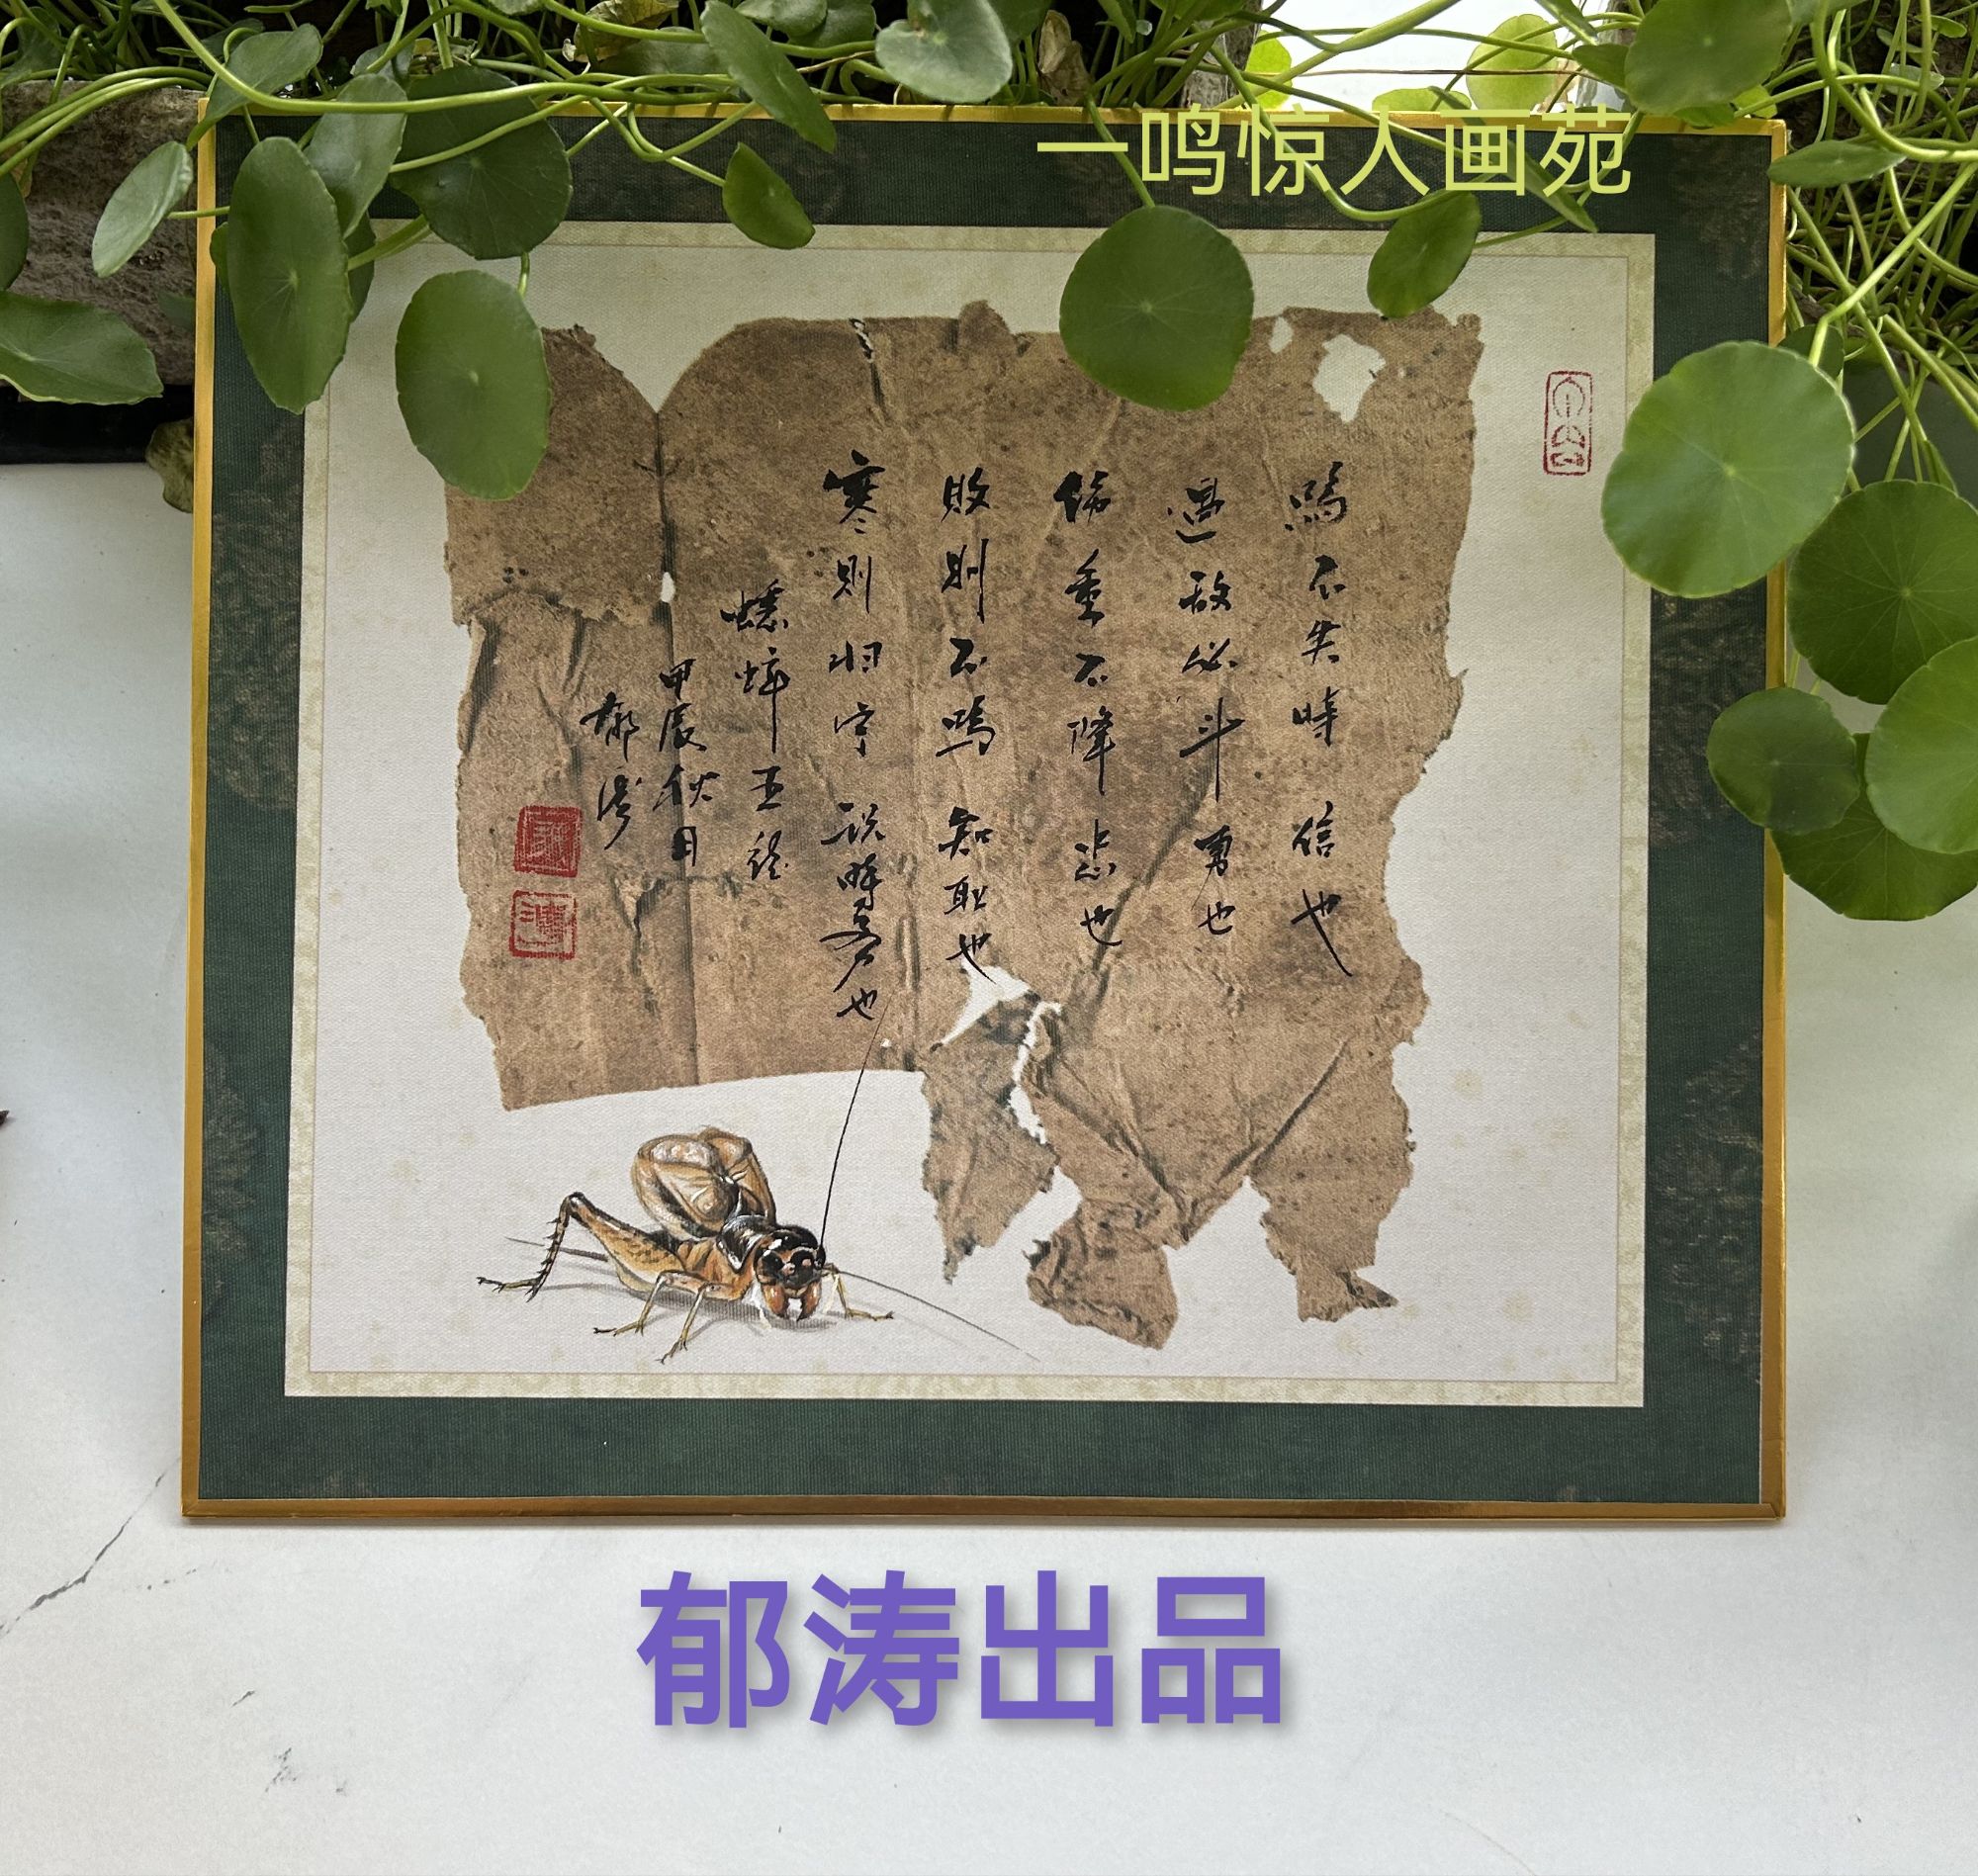 一鸣惊人画苑
鳴不失時 信也
遇敌必斗 勇也
傷重不降 忠也
敗則不鳴 知耻也
寒則归宁 识時务也
蟋蟀五德
甲辰秋月
郁涛
郁涛出品